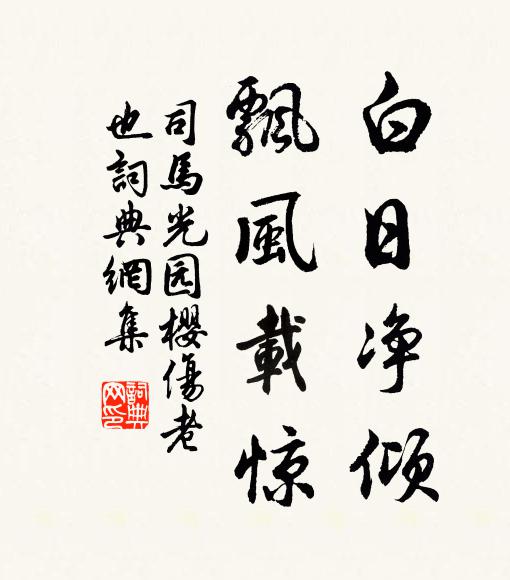 白日净倾
飘風載惊
司馬光园櫻傷老
也詞典網集
詞典网印